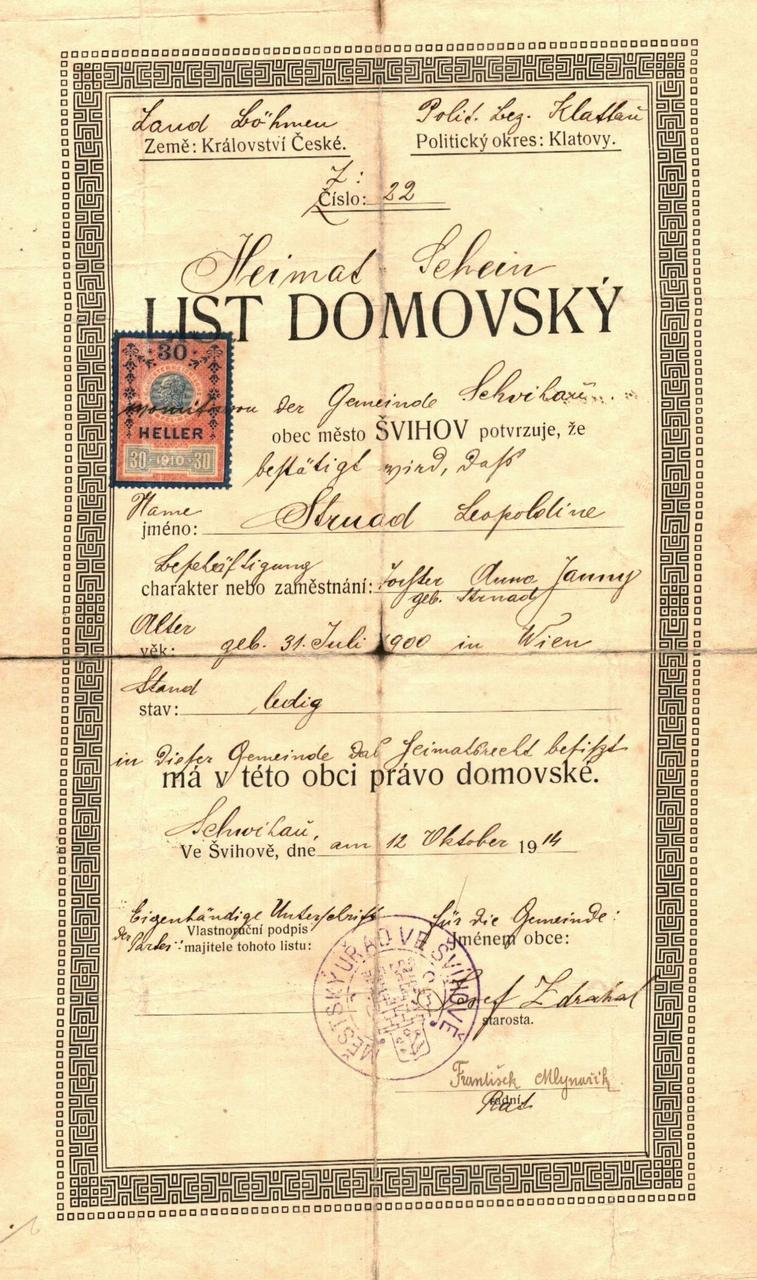 Land Böhmen
Země: Království České.
Polit. bez. Klattau
Politický okres: Klatovy.
Z:
Číslo: 22
Heimat-Schein
LIST DOMOVSKÝ
30
HELLER
30 1910 30
womit von der Gemeinde Schwihau
obec město ŠVIHOV potvrzuje, že
bestätigt wird, daß
Name
jméno: Strnad Leopoldine
Beschäftigung
charakter nebo zaměstnání: Tochter Anna Janny
geb. Strnad
Alter
věk: geb. 31. Juli 1900 in Wien
Stand
stav: ledig
in dieser Gemeinde das Heimatsrecht besitzt
má v této obci právo domovské.
Schwihau,
Ve Švihově, dne am 12 Oktober 1914
Eigenhändige Unterschrift
der Partei:
Vlastnoruční podpis
majitele tohoto listu:
für die Gemeinde:
Jménem obce:
MĚSTSKÝ ÚŘAD VE ŠVIHOVĚ
Josef Zdrahal
starosta.
František Mlynařík
radní.
Rat